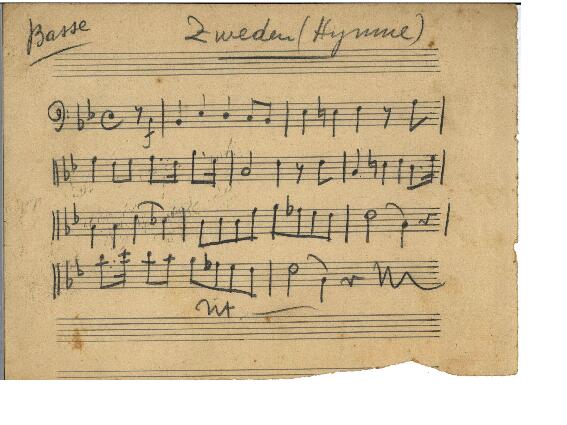 Basse
Zweden (Hymne)
f